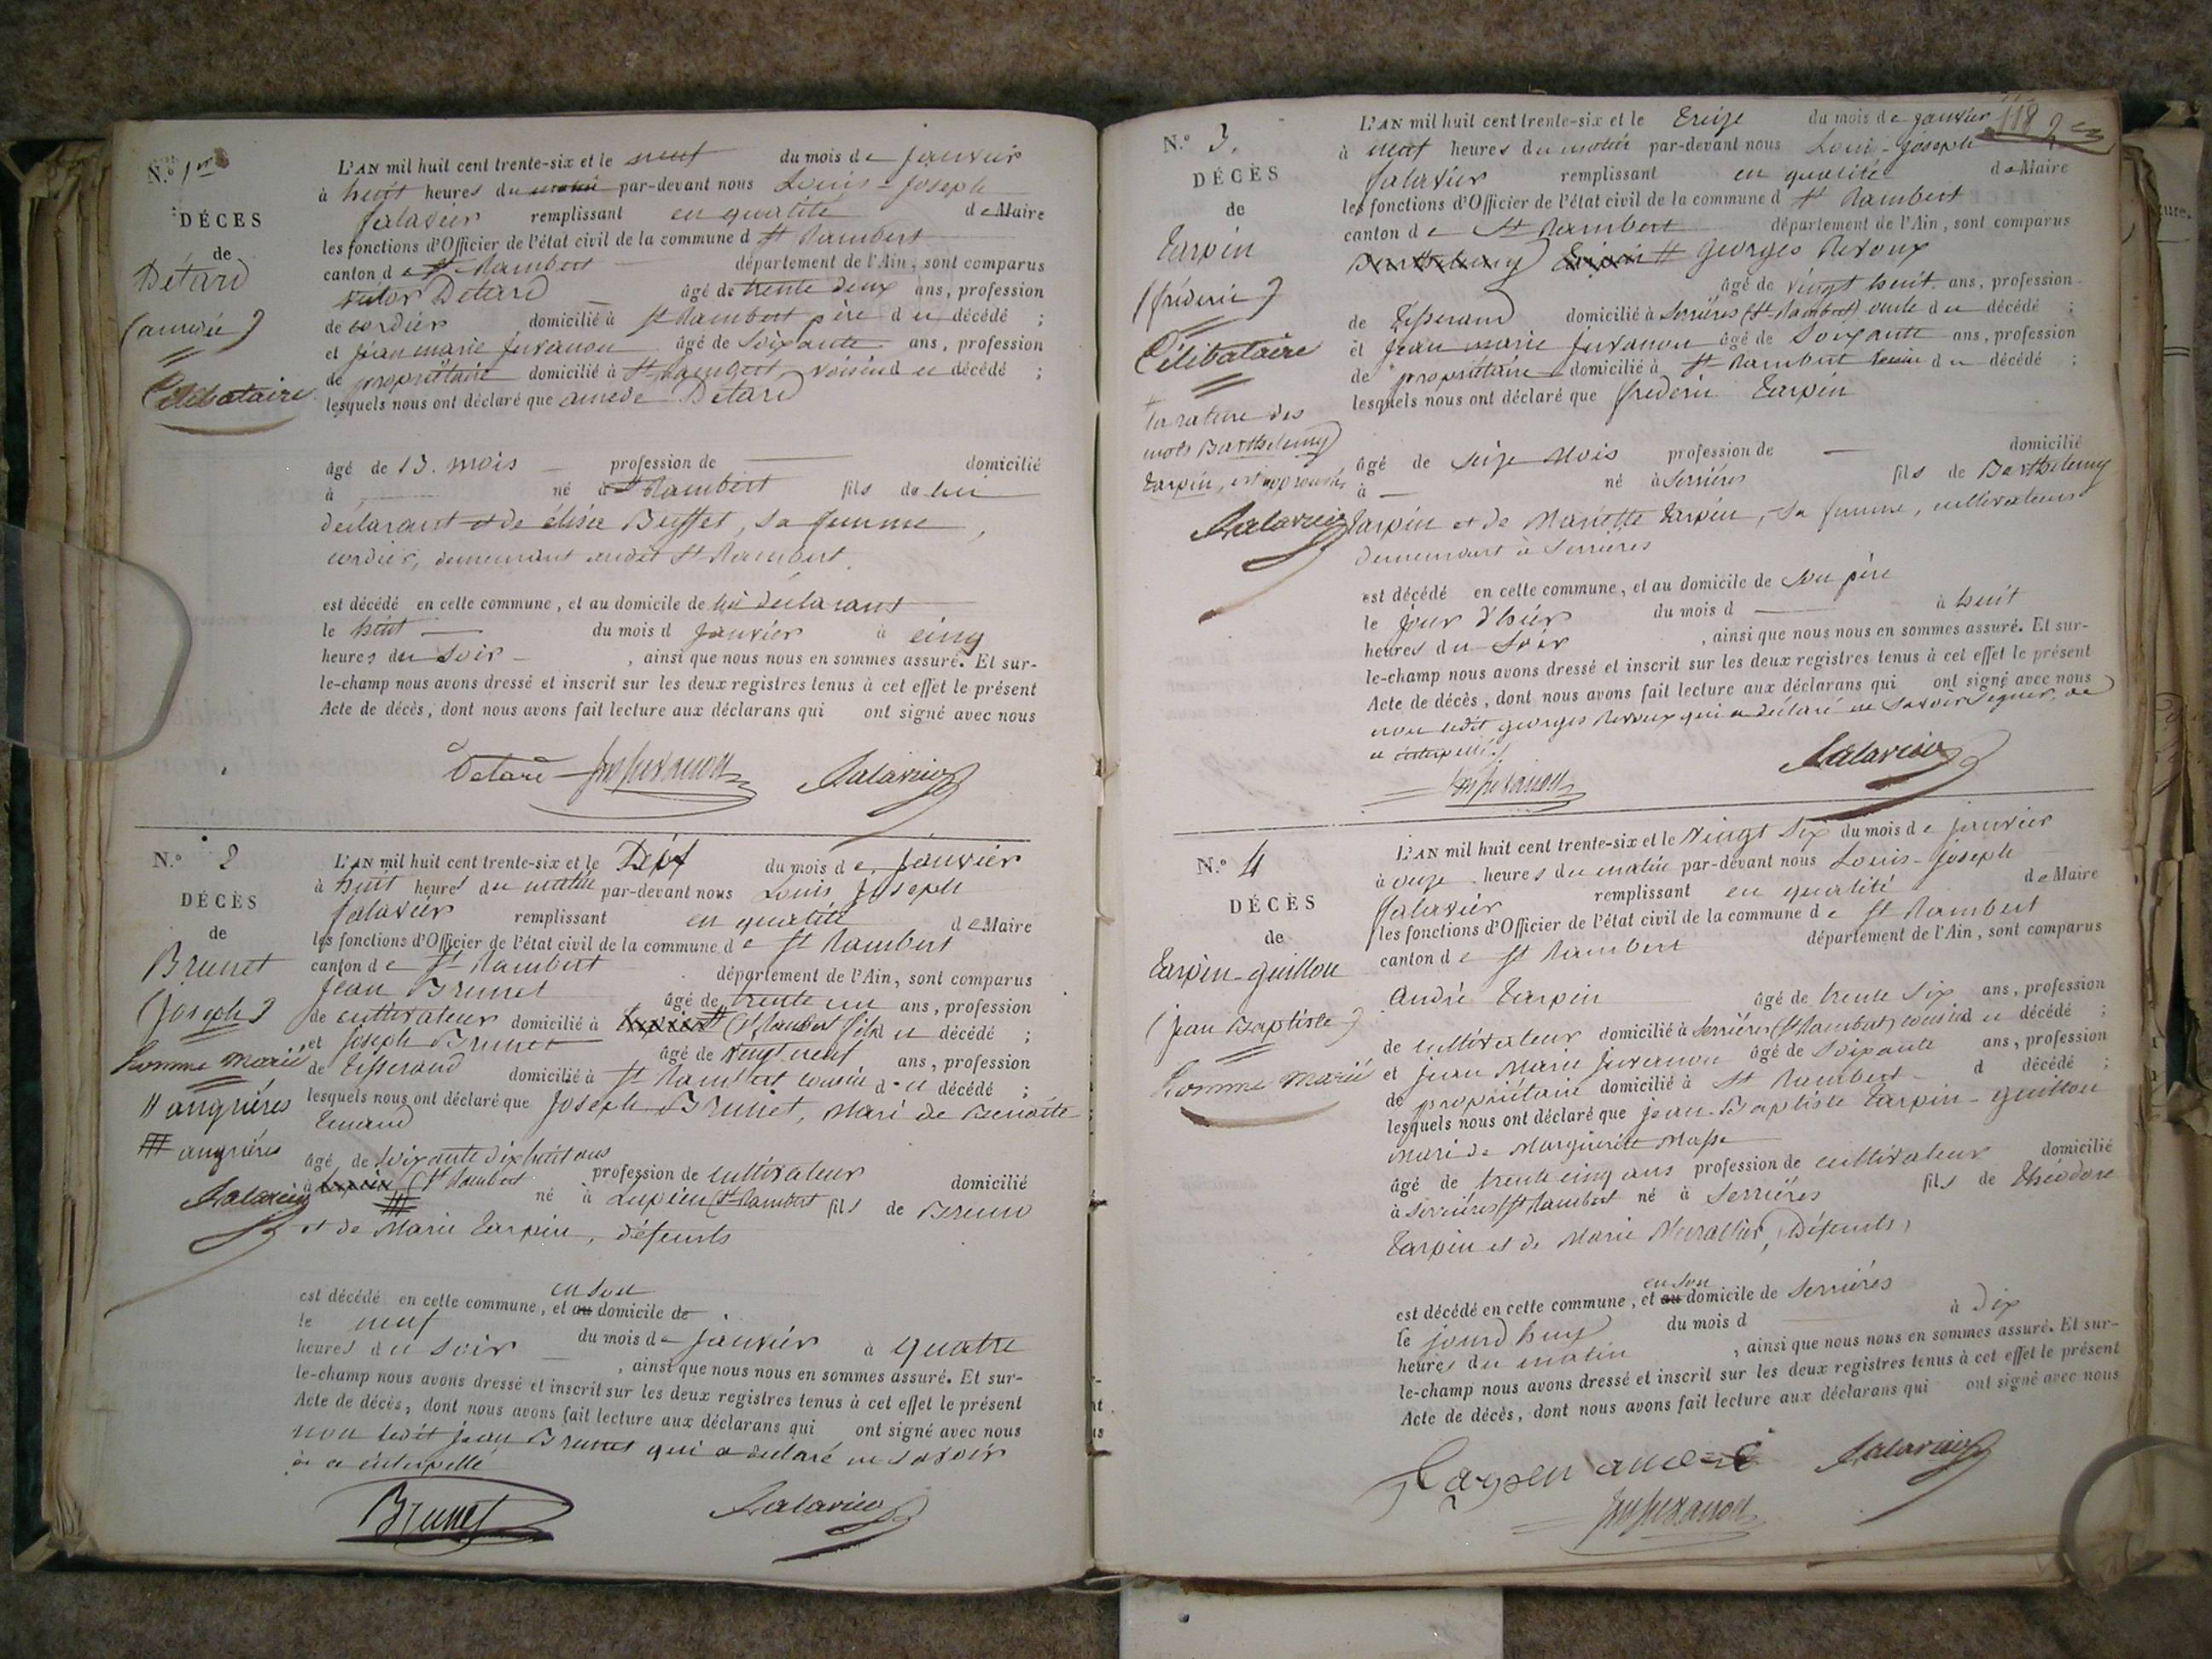 N.º 1er
DÉCES
de
Détard
(amédée)
Célibataire
L'AN mil huit cent trente-six et le neuf du mois de janvier
à huit heures du matin par-devant nous Louis-Joseph
Salavier remplissant en qualité de Maire
les fonctions d'Officier de l'état civil de la commune d St Rambert
canton de St Rambert département de l'Ain, sont comparus
victor Détard âgé de trente deux ans, profession
de cordier domicilié à St Rambert père du décédé ;
et jean marie juvanon âgé de soixante ans, profession
de propriétaire domicilié à St Rambert, voisin du décédé ;
lesquels nous ont déclaré que amédé Détard
âgé de 13. mois profession de — domicilié
à — né à St Rambert fils de lui
déclarant et de élisée Buffet, sa femme,
cordier, demeurant audit St Rambert.
est décédé en cette commune, et au domicile de lui déclarant
le huit du mois d janvier à cinq
heures du soir, ainsi que nous nous en sommes assuré. Et sur-
le-champ nous avons dressé et inscrit sur les deux registres tenus à cet effet le présent
Acte de décès, dont nous avons fait lecture aux déclarans qui ont signé avec nous
Détard Jm juvanon Salavier
N.º 2
DÉCÈS
de
Brunet
(joseph)
homme marié
H angrières
HH angrières
Salavier
L'AN mil huit cent trente-six et le Dix du mois de janvier
à huit heures du matin par-devant nous Louis Joseph
Salavier remplissant en qualité de Maire
les fonctions d'Officier de l'état civil de la commune de St Rambert
canton de St Rambert département de l'Ain, sont comparus
Jean Brunet âgé de trente un ans, profession
de cultivateur domicilié à (St Rambert fils du décédé ;
et joseph Brunet âgé de vingt neuf ans, profession
de Tisserand domicilié à St Rambert cousin du décédé ;
lesquels nous ont déclaré que joseph Brunet, mari de Benoite
âgé de soixante dix huit ans profession de cultivateur domicilié
à (St Rambert né à Lupieu (St Rambert fils de Bruno
et de Marie Tarpin, défunts
est décédé en cette commune, et en son domicile de
le neuf du mois de janvier à quatre
heures du soir, ainsi que nous nous en sommes assuré. Et sur-
le-champ nous avons dressé et inscrit sur les deux registres tenus à cet effet le présent
Acte de décès, dont nous avons fait lecture aux déclarans qui ont signé avec nous
non ledit jean Brunet qui a déclaré ne savoir
de ce interpellé
Brunet Salavier
118
N.º 3.
DÉCÈS
de
Tarpin
(fréderic)
Célibataire
la rature des
mots Barthelemy
Tarpin, est approuvée
Salavier
L'AN mil huit cent trente-six et le Treize du mois de janvier
à neuf heures du matin par-devant nous Louis-joseph
Salavier remplissant en qualité de Maire
les fonctions d'Officier de l'état civil de la commune d St Rambert
canton de St Rambert département de l'Ain, sont comparus
Barthelemy Tarpin H georges Revoux
âgé de vingt huit ans, profession
de Tisserand domicilié à Serrières (St Rambert) oncle du décédé ;
et jean marie juvanon âgé de soixante ans, profession
de propriétaire domicilié à St Rambert voisin du décédé ;
lesquels nous ont déclaré que frederic Tarpin
âgé de seize mois profession de — domicilié
à — né à Serrières fils de Barthelemy
Tarpin et de Mariette Tarpin, sa femme, cultivateurs
demeurant à Serrières
est décédé en cette commune, et au domicile de son père
le jour d'hier du mois d — à huit
heures du soir, ainsi que nous nous en sommes assuré. Et sur-
le-champ nous avons dressé et inscrit sur les deux registres tenus à cet effet le présent
Acte de décès, dont nous avons fait lecture aux déclarans qui ont signé avec nous
non ledit georges Revoux qui a déclaré ne savoir signer, de
ce interpellé.
Jm juvanon Salavier
N.º 4
DÉCÈS
de
Tarpin-guillon
(jean Baptiste)
homme marié
L'AN mil huit cent trente-six et le vingt six du mois de janvier
à onze heures du matin par-devant nous Louis-joseph
Salavier remplissant en qualité de Maire
les fonctions d'Officier de l'état civil de la commune de St Rambert
canton de St Rambert département de l'Ain, sont comparus
andré Tarpin âgé de trente six ans, profession
de cultivateur domicilié à Serrières (St Rambert) cousin du décédé ;
et jean Marie juvanon âgé de soixante ans, profession
de propriétaire domicilié à St Rambert d décédé ;
lesquels nous ont déclaré que jean-Baptiste Tarpin-guillon
mari de Marguerite Masse
âgé de trente cinq ans profession de cultivateur domicilié
à Serrières (St Rambert né à Serrières fils de théodore
Tarpin et de Marie, Défunts,
est décédé en cette commune, et en son domicile de Serrières
le jourd'huy du mois d à Dix
heures du matin, ainsi que nous nous en sommes assuré. Et sur-
le-champ nous avons dressé et inscrit sur les deux registres tenus à cet effet le présent
Acte de décès, dont nous avons fait lecture aux déclarans qui ont signé avec nous
Tarpin andré Salavier
Jm juvanon